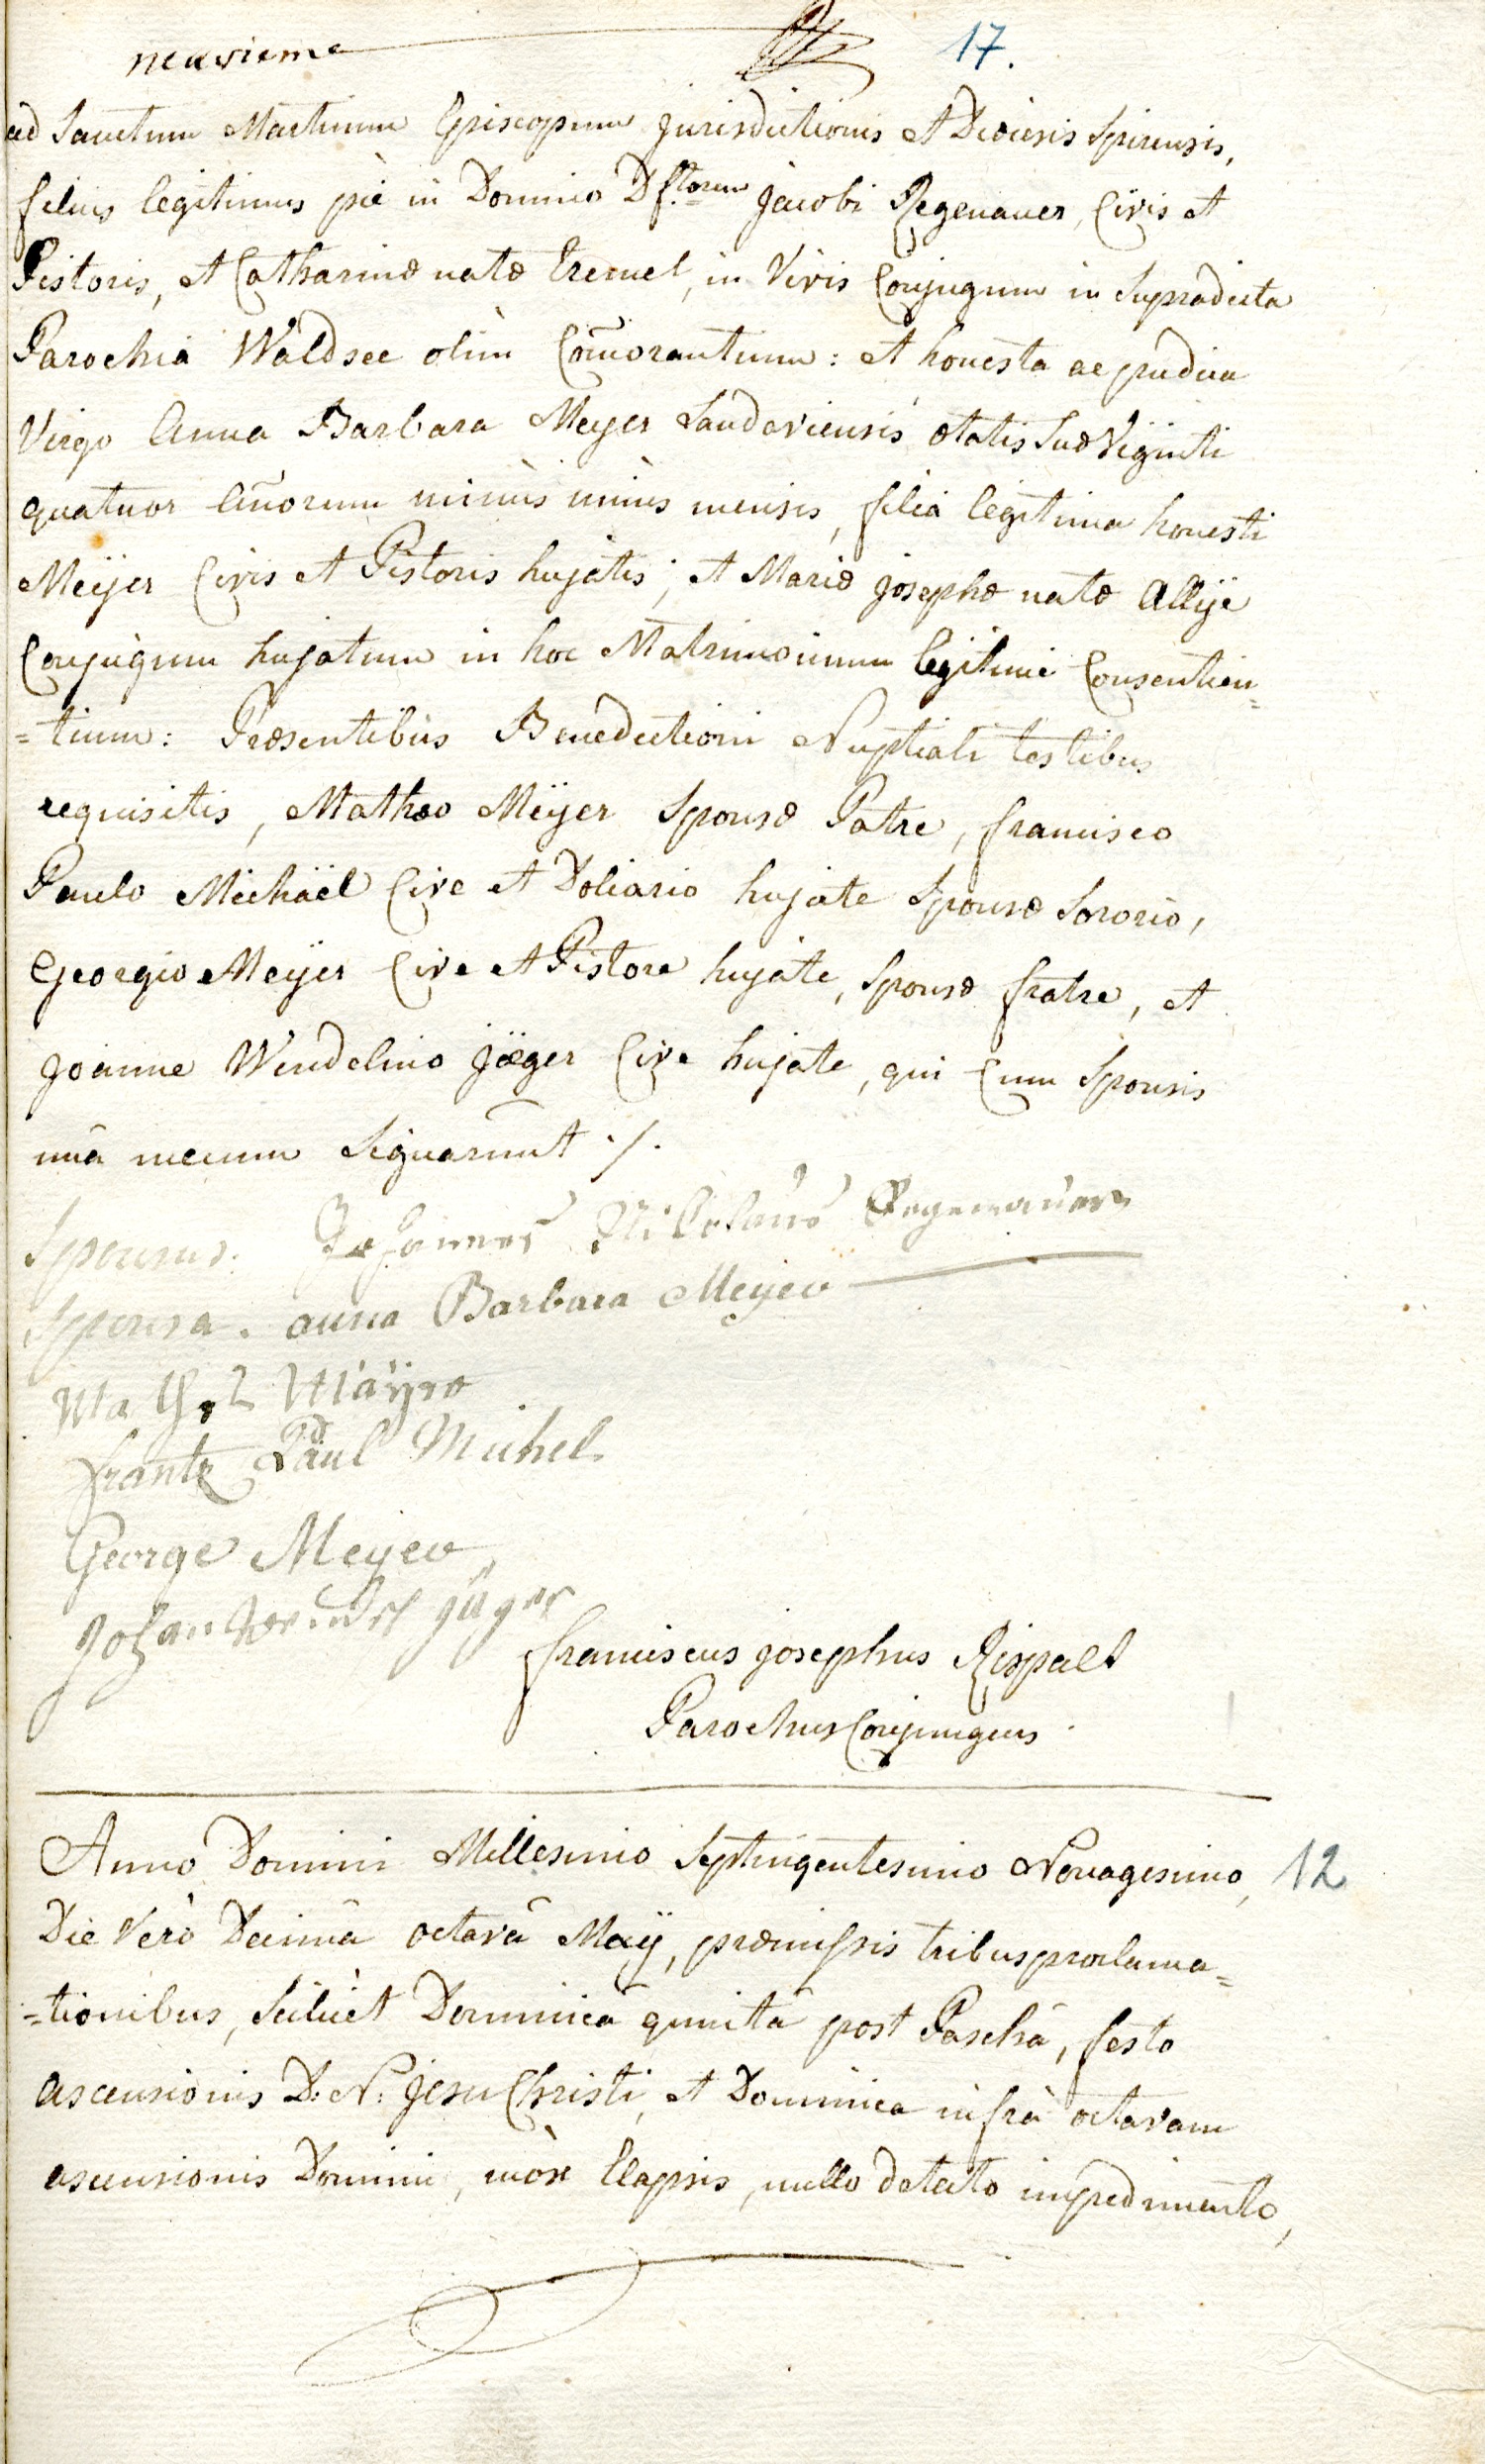 neuvieme 17.
ad Sanctum Martinum Episcopum jurisdictionis et Diœcesis Spirensis,
filius legitimus piè in Domino Df.torum Jacobi Regenauer, Civis et
Pistoris, et Catharinæ natæ Tremel, in Vivis Conjugum in Supradicta
Parochiâ Waldsee olim Com̃orantium: et honesta ac pudica
Virgo Anna Barbara Meyer Landaviensis ætatis Suæ Viginti
quatuor añorum minùs unius mensis, filia legitima honesti
Meÿer Civis et Pistoris hujatis; et Mariæ Josephæ natæ Allÿe
Conjugum hujatum in hoc Matrimonium legitimè Consentien=
=tium: Præsentibus Benedictioni Nuptiali testibus
requisitis, Mathæo Meÿer Sponsæ Patre, francisco
Paulo Michäel Cive et Doliario hujate Sponsæ Sororio,
Georgio Meÿer Cive et Pistore hujate, Sponsæ fratre, et
Joanne Wendelino Jæger Cive hujate, qui Cum Sponsis
unâ mecum Signarunt ·/.
Sponsus. Johannes Nikolaus Regenauer
Sponsa. anna Barbara Meyer
Maÿer
frantz Paul Michel
George Meyer
Johan Wendel Jäger
franciscus josephus Rispalt
Parochus Conjungens
Anno Domini Millesimo Septingentesimo Nonagesimo, 12
Die Verò Decimâ octavâ Maÿ, præmissis tribus proclama=
=tionibus, Scilicèt Dominicâ quintâ post Pascha, festo
ascensionis D: N: Jesu Christi, et Dominica infrà octavam
ascensionis Domini, mox Elapsis, nullo detecto impedimento,